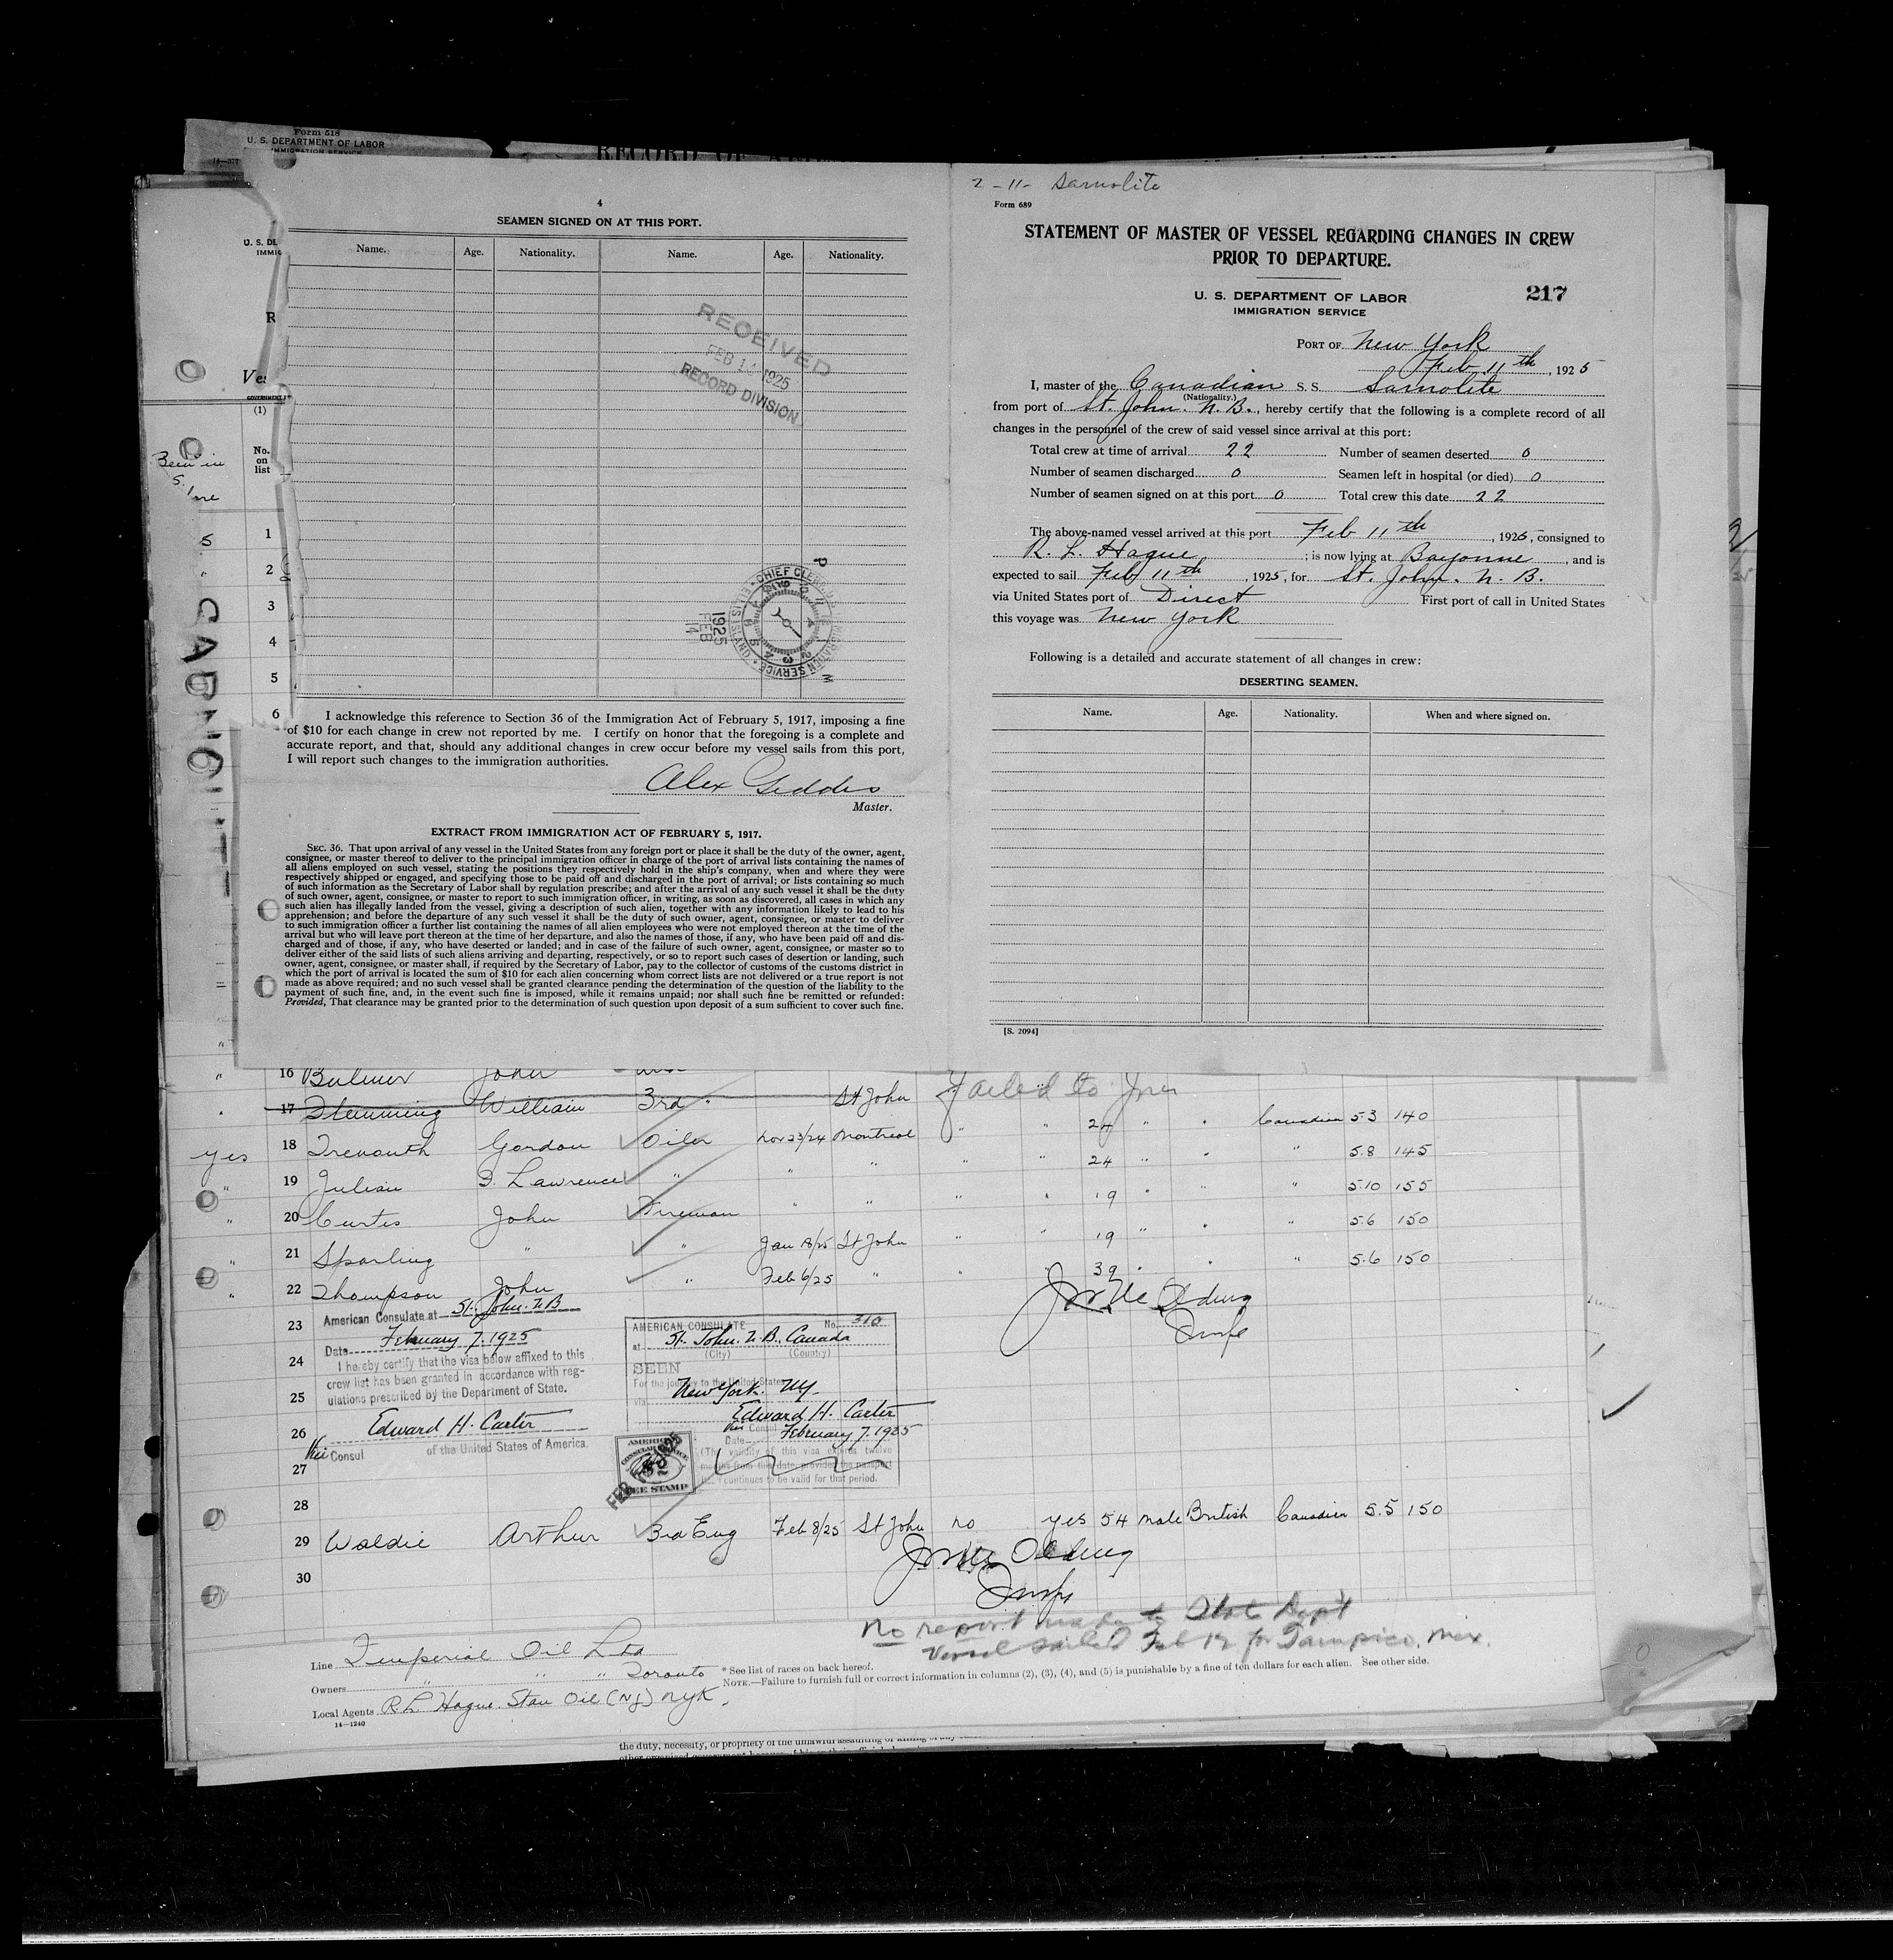 Form 518
U. S. DEPARTMENT OF LABOR
IMMIGRATION SERVICE
14—377
U. S. DE
IMMIG
R
Ves
(1)
No.
on
list
Been in
S.
1
2
3
4
5
6
4
SEAMEN SIGNED ON AT THIS PORT.
Name. Age. Nationality. Name. Age. Nationality.
RECEIVED
FEB 14 1925
RECORD DIVISION
1925
FEB
14
I acknowledge this reference to Section 36 of the Immigration Act of February 5, 1917, imposing a fine
of $10 for each change in crew not reported by me. I certify on honor that the foregoing is a complete and
accurate report, and that, should any additional changes in crew occur before my vessel sails from this port,
I will report such changes to the immigration authorities.
Alex Geddes
Master.
EXTRACT FROM IMMIGRATION ACT OF FEBRUARY 5, 1917.
SEC. 36. That upon arrival of any vessel in the United States from any foreign port or place it shall be the duty of the owner, agent,
consignee, or master thereof to deliver to the principal immigration officer in charge of the port of arrival lists containing the names of
all aliens employed on such vessel, stating the positions they respectively hold in the ship's company, when and where they were
respectively shipped or engaged, and specifying those to be paid off and discharged in the port of arrival; or lists containing so much
of such information as the Secretary of Labor shall by regulation prescribe; and after the arrival of any such vessel it shall be the duty
of such owner, agent, consignee, or master to report to such immigration officer, in writing, as soon as discovered, all cases in which any
such alien has illegally landed from the vessel, giving a description of such alien, together with any information likely to lead to his
apprehension; and before the departure of any such vessel it shall be the duty of such owner, agent, consignee, or master to deliver
to such immigration officer a further list containing the names of all alien employees who were not employed thereon at the time of the
arrival but who will leave port thereon at the time of her departure, and also the names of those, if any, who have been paid off and dis-
charged and of those, if any, who have deserted or landed; and in case of the failure of such owner, agent, consignee, or master so to
deliver either of the said lists of such aliens arriving and departing, respectively, or so to report such cases of desertion or landing, such
owner, agent, consignee, or master shall, if required by the Secretary of Labor, pay to the collector of customs of the customs district in
which the port of arrival is located the sum of $10 for each alien concerning whom correct lists are not delivered or a true report is not
made as above required; and no such vessel shall be granted clearance pending the determination of the question of the liability to the
payment of such fine, and, in the event such fine is imposed, while it remains unpaid; nor shall such fine be remitted or refunded:
Provided, That clearance may be granted prior to the determination of such question upon deposit of a sum sufficient to cover such fine.
2 - 11 - Sarnolite
Form 689
STATEMENT OF MASTER OF VESSEL REGARDING CHANGES IN CREW
PRIOR TO DEPARTURE.
U. S. DEPARTMENT OF LABOR
IMMIGRATION SERVICE
217
PORT OF New York
Feb 11th, 1925
I, master of the Canadian S. S. Sarnolite
(Nationality.)
from port of St. John. N. B., hereby certify that the following is a complete record of all
changes in the personnel of the crew of said vessel since arrival at this port:
Total crew at time of arrival 22 Number of seamen deserted 0
Number of seamen discharged 0 Seamen left in hospital (or died) 0
Number of seamen signed on at this port 0 Total crew this date 22
The above-named vessel arrived at this port Feb 11th, 1925, consigned to
R. L. Hague; is now lying at Bayonne, and is
expected to sail Feb 11th, 1925, for St. John. N. B.
via United States port of Direct First port of call in United States
this voyage was New York
Following is a detailed and accurate statement of all changes in crew:
DESERTING SEAMEN.
Name. Age. Nationality. When and where signed on.
[S. 2094]
16 Bulmer John
17 Flemming William 3rd " St John Failed to Join
yes 18 Trenouth Gordon Oiler Nov 23/24 Montreal " " 24 " " Canadian 5.3 140
" 19 Julian D. Lawrence " " " " " 24 " " " 5.8 145
" 20 Curtis John Fireman " " " " 19 " " " 5.10 155
" 21 Sparling " " Jan 18/25 St John " " 19 " " " 5.6 150
" 22 Thompson John " Feb 6/25 " " " 39 " " " 5.6 150
23 American Consulate at St. John. N. B
Date February 7. 1925
24 I hereby certify that the visa below affixed to this
crew list has been granted in accordance with reg-
25 ulations prescribed by the Department of State.
26 Edward H. Carter
Vice Consul of the United States of America.
27
AMERICAN CONSULATE No. 310
at St. John. N. B. Canada
(City) (Country)
SEEN
For the journey to the United States
via New York. NY.
Edward H. Carter
Vice Consul
Date February 7. 1925
(The validity of this visa expires twelve
months from this date provided the passport
continues to be valid for that period.
AMERICAN
CONSULAR SERVICE
$2
FEE STAMP
28
29 Waldie Arthur 3rd Eng Feb 8/25 St John no yes 54 male British Canadian 5.5 150
30
No report made to State Dept
Vessel sailed Feb 12 for Tampico, Mex.
Line Imperial Oil Ltd
Owners " " " Toronto
Local Agents R L Hague. Stan Oil (NJ) NYK.
14—1240
* See list of races on back hereof.
NOTE.—Failure to furnish full or correct information in columns (2), (3), (4), and (5) is punishable by a fine of ten dollars for each alien. See other side.